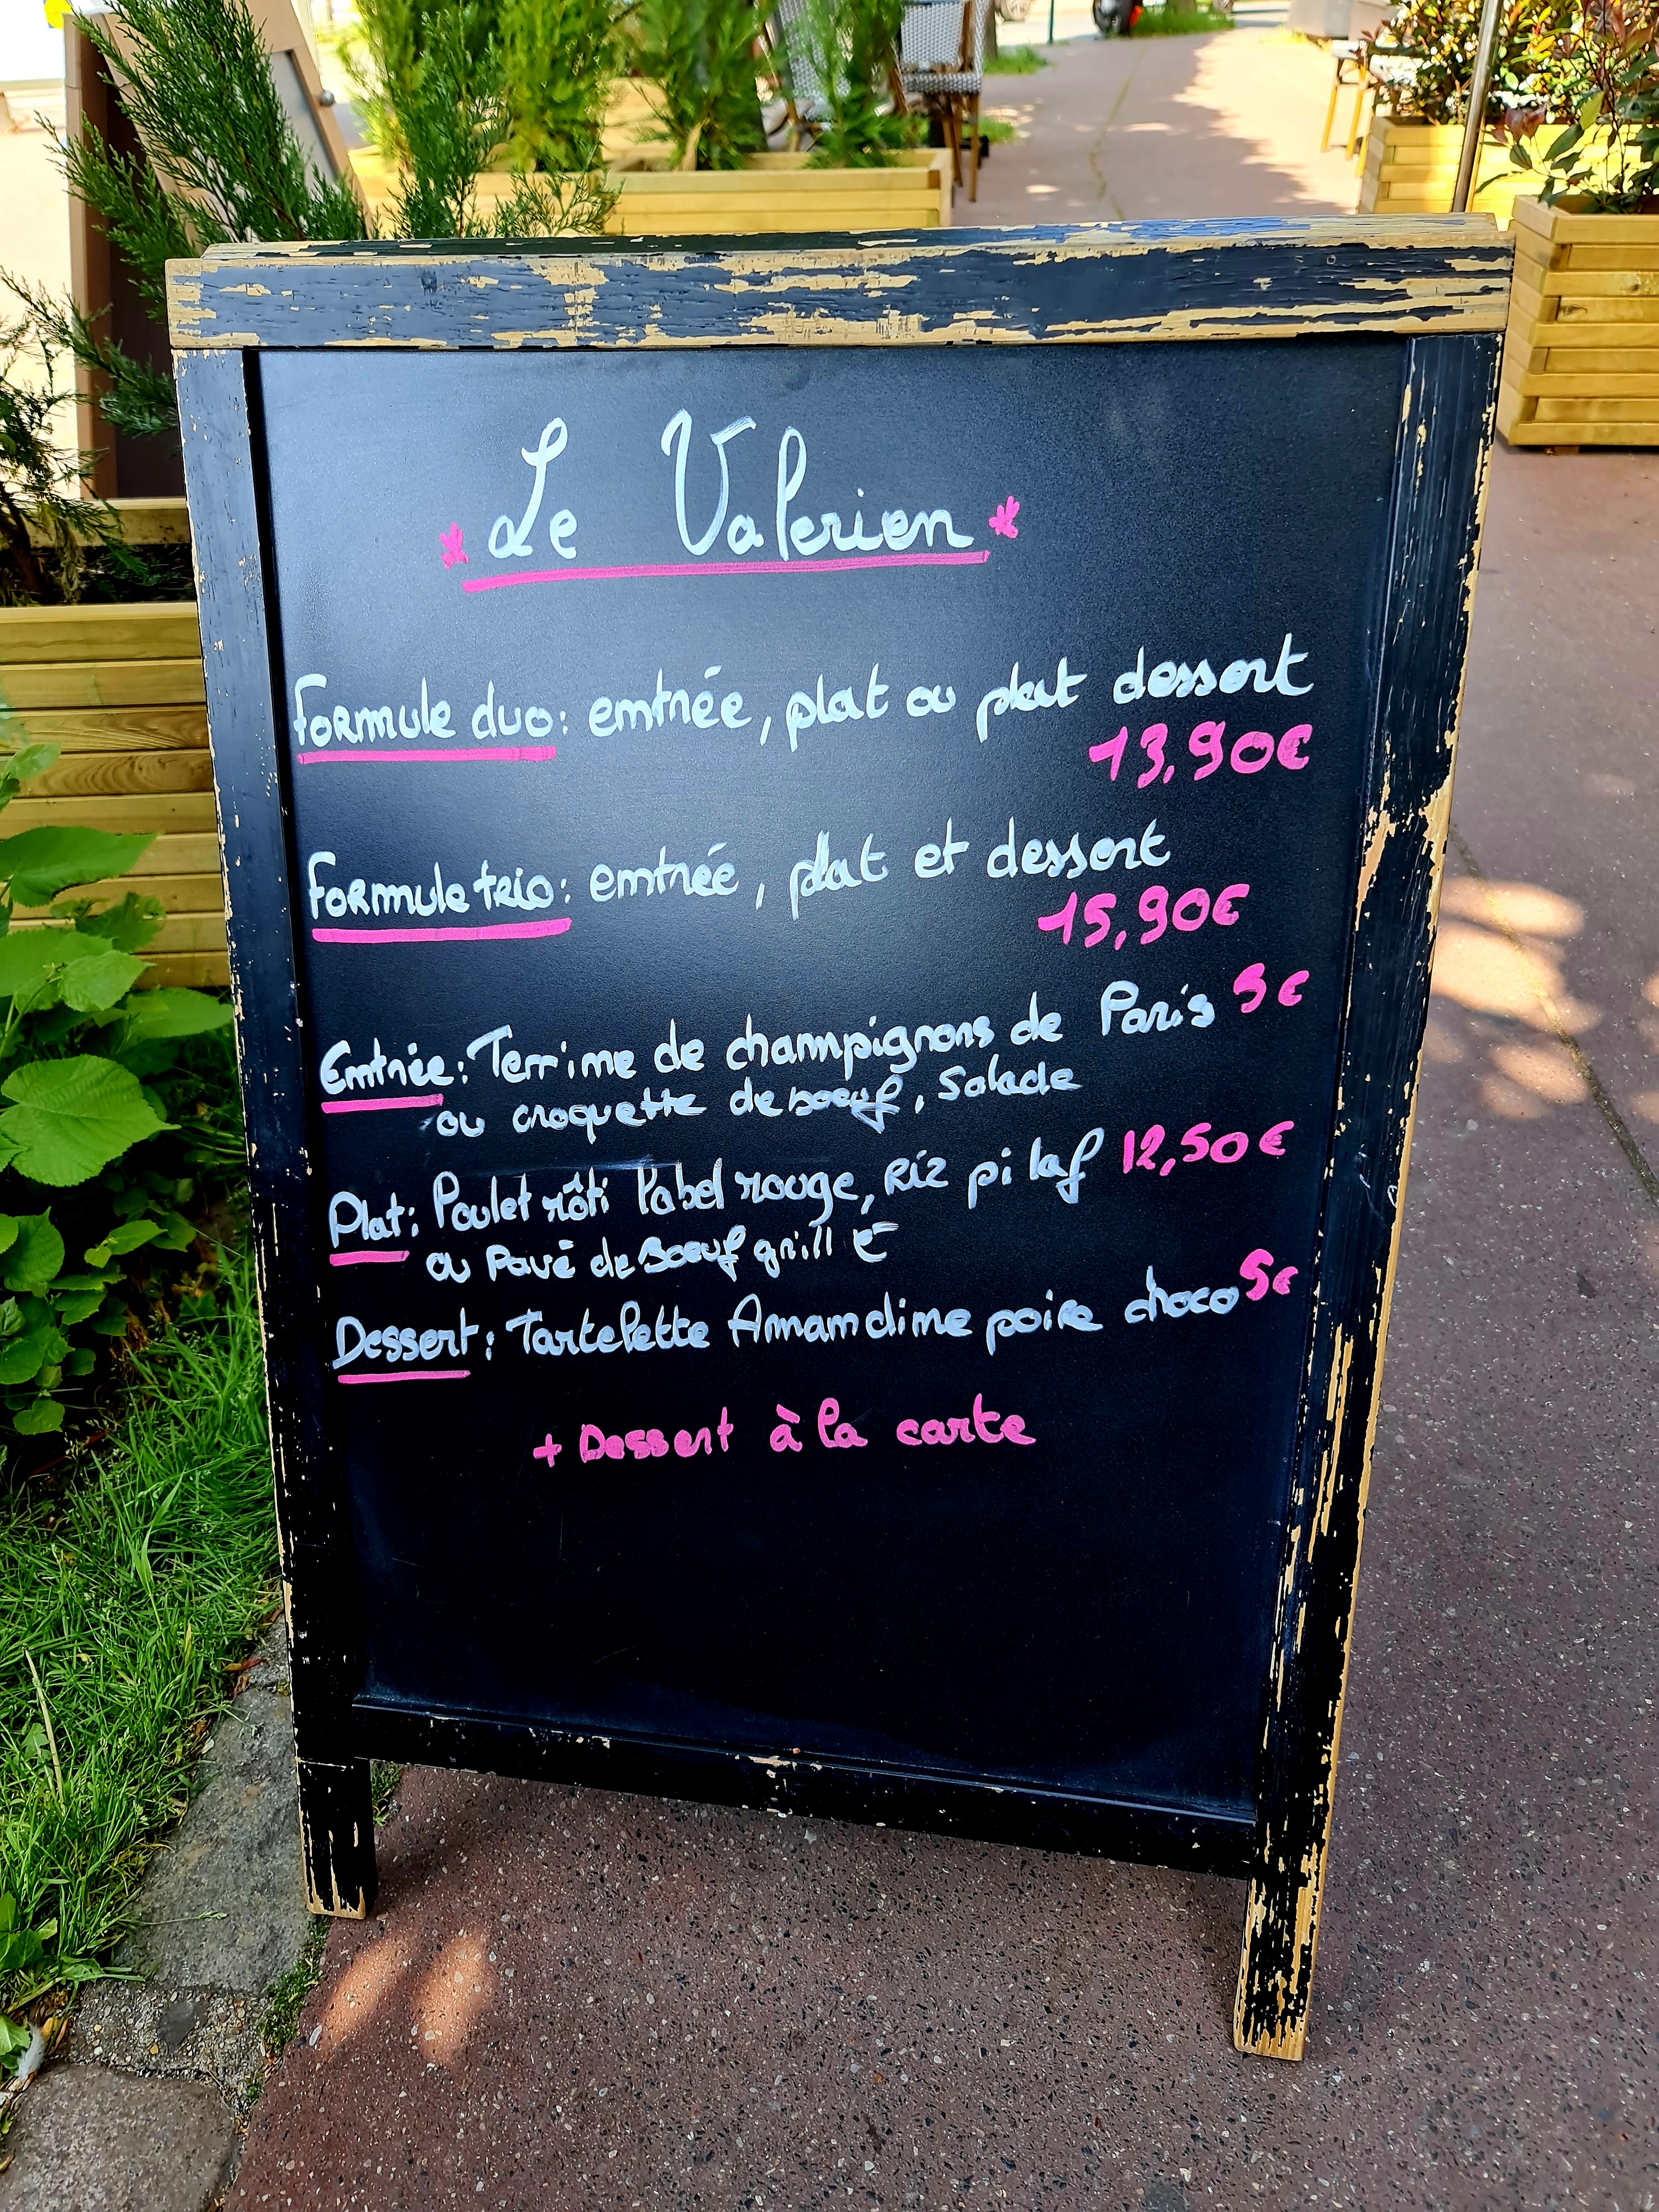 * Le Valerien *
Formule duo: entrée, plat ou plat dessert
13,90€
Formule trio: entrée, plat et dessert
15,90€
Entrée: Terrine de champignons de Paris 5€
ou croquette de boeuf, Salade
Plat: Poulet rôti label rouge, Riz pilaf 12,50€
ou Pavé de Boeuf grillé
Dessert: Tartelette Amandine poire choco 5€
+ Dessert à la carte